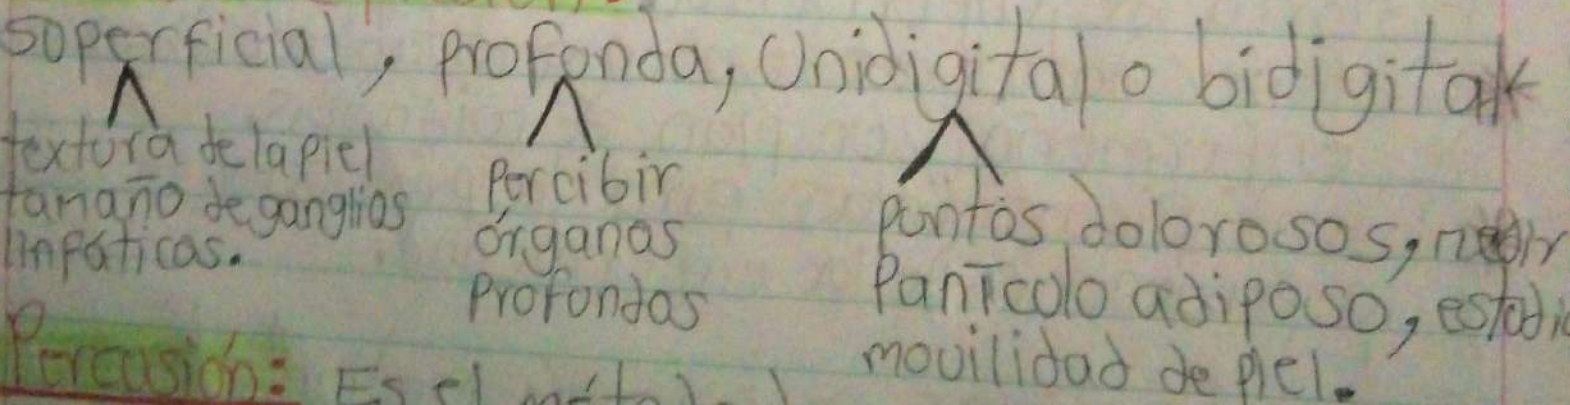 soperficial, profonda, Unidigital o bidigital
textura de la piel
tamaño de ganglios
linfáticos.
Percibir
órganos
Profondos
puntos dolorosos, medir
Panícolo adiposo,
movilidad de piel.
Percusión: Es el método